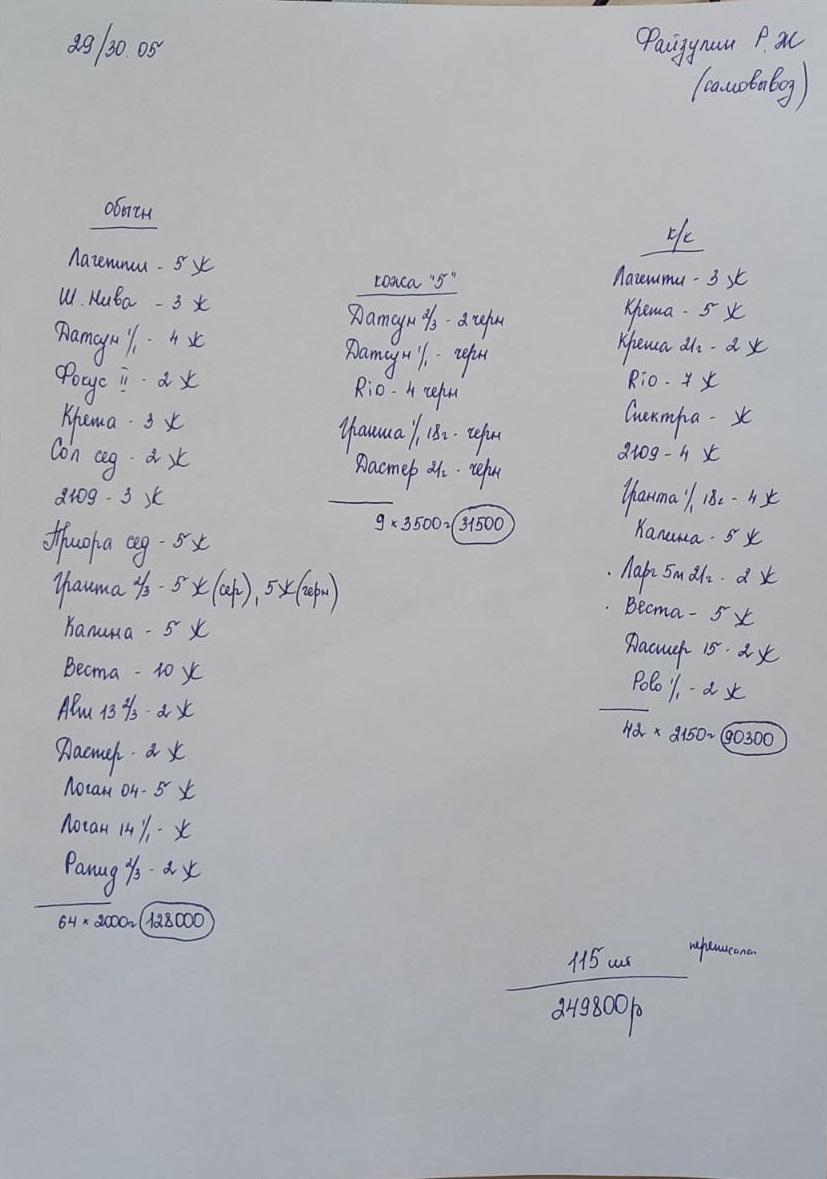 29/30.05
Файзулин Р. Ж
(самовывоз)
обычн
Лачетти - 5 Ж
Ш. Нива - 3 Ж
Датсун 1/1 - 4 Ж
Фокус II - 2 Ж
Крета - 3 Ж
Сол сед - 2 Ж
2109 - 3 Ж
Приора сед - 5 Ж
Гранта 2/3 - 5 Ж (сер), 5 Ж (черн)
Калина - 5 Ж
Веста - 10 Ж
Alm 13 2/3 - 2 Ж
Дастер - 2 Ж
Логан 04 - 5 Ж
Логан 14 1/1 - Ж
Рапид 2/3 - 2 Ж
64 × 2000 = 128000
кожа "5"
Датсун 2/3 - 2 черн
Датсун 1/1 - черн
Rio - 4 черн
Гранта 1/1 18г - черн
Дастер 21г - черн
9 × 3500 = 31500
к/к
Лачетти - 3 Ж
Крета - 5 Ж
Крета 21г - 2 Ж
Rio - 7 Ж
Спектра - Ж
2109 - 4 Ж
Гранта 1/1 18г - 4 Ж
Калина - 5 Ж
Ларг 5м 21г - 2 Ж
Веста - 5 Ж
Дастер 15 - 2 Ж
Polo 1/1 - 2 Ж
42 × 2150 = 90300
115 шт
249800р
переписала